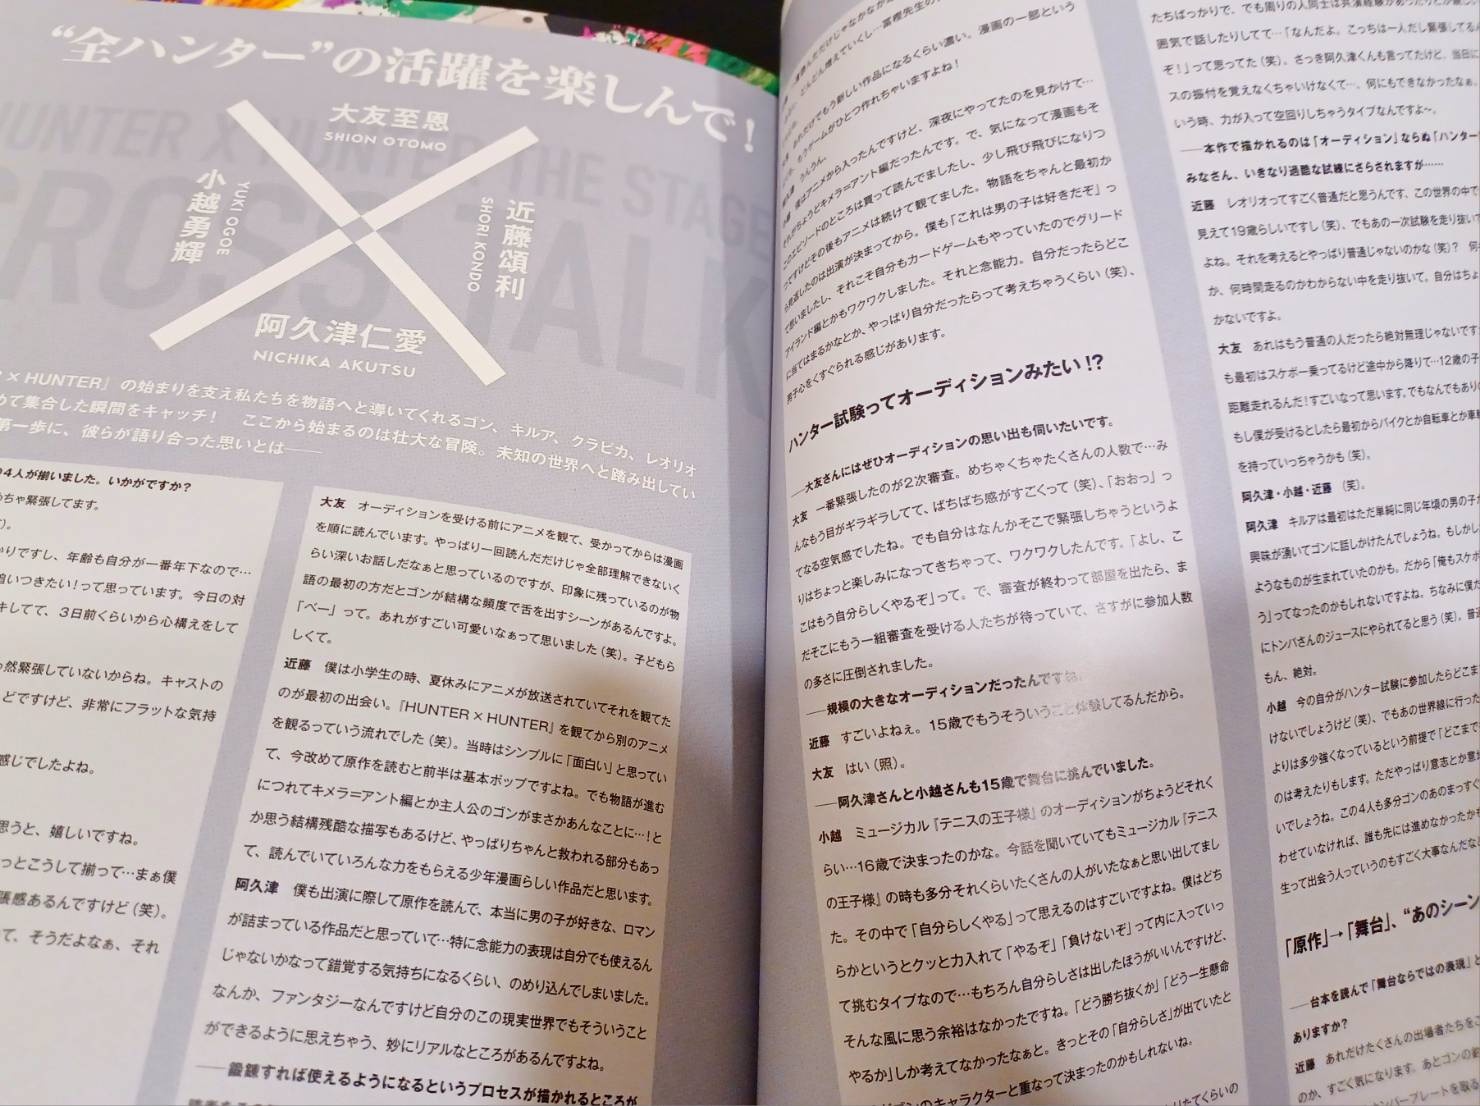 “全ハンター”の活躍を楽しんで!
HUNTER × HUNTER THE STAGE
CROSS TALK
大友至恩
SHION OTOMO
小越勇輝
YUKI OGOE
近藤頌利
SHORI KONDO
阿久津仁愛
NICHIKA AKUTSU
× HUNTER』の始まりを支え私たちを物語へと導いてくれるゴン、キルア、クラピカ、レオリオ
めて集合した瞬間をキャッチ! ここから始まるのは壮大な冒険。未知の世界へと踏み出してい
第一歩に、彼らが語り合った思いとは——
4人が揃いました。いかがですか?
めちゃ緊張してます。
かりですし、年齢も自分が一番年下なので…
追いつきたい!って思っています。今日の対
キしてて、3日前くらいから心構えをして
然緊張していないからね。キャストの
どですけど、非常にフラットな気持
感じでしたよね。
思うと、嬉しいですね。
っとこうして揃って…まぁ僕
張感あるんですけど(笑)。
て、そうだよなぁ、それ
大友 オーディションを受ける前にアニメを観て、受かってからは漫画
を順に読んでいます。やっぱり一回読んだだけじゃ全部理解できないく
らい深いお話しだなぁと思っているのですが、印象に残っているのが物
語の最初の方だとゴンが結構な頻度で舌を出すシーンがあるんですよ。
「べー」って。あれがすごい可愛いなぁって思いました(笑)。子どもら
しくて。
近藤 僕は小学生の時、夏休みにアニメが放送されていてそれを観てた
のが最初の出会い。『HUNTER×HUNTER』を観てから別のアニメ
を観るっていう流れでした(笑)。当時はシンプルに「面白い」と思ってい
て、今改めて原作を読むと前半は基本ポップですよね。でも物語が進む
につれてキメラ=アント編とか主人公のゴンがまさかあんなことに…!と
か思う結構残酷な描写もあるけど、やっぱりちゃんと救われる部分もあっ
て、読んでいていろんな力をもらえる少年漫画らしい作品だと思います。
阿久津 僕も出演に際して原作を読んで、本当に男の子が好きな、ロマン
が詰まっている作品だと思っていて…特に念能力の表現は自分でも使えるん
じゃないかなって錯覚する気持ちになるくらい、のめり込んでしまいました。
なんか、ファンタジーなんですけど自分のこの現実世界でもそういうこと
ができるように思えちゃう、妙にリアルなところがあるんですよね。
——鍛錬すれば使えるようになるというプロセスが描かれるところが
どんどん増えていくし…冨樫先生の
それだけでもう新しい作品になるくらい濃い。漫画の一部という
もうゲームがひとつ作れちゃいますよね!
うんうん。
僕はアニメから入ったんですけど、深夜にやってたのを見かけて…
それがちょうどキメラ=アント編だったんです。で、気になって漫画もそ
のエピソードのところは買って読んでましたし、少し飛び飛びになりつ
つですけどその後もアニメは続けて観てました。物語をちゃんと最初か
ら見返したのは出演が決まってから。僕も「これは男の子は好きだぞ」っ
て思いましたし、それこそ自分もカードゲームもやっていたのでグリード
アイランド編とかもワクワクしました。それと念能力。自分だったらどこ
に当てはまるかなとか、やっぱり自分だったらって考えちゃうくらい(笑)、
男子心をくすぐられる感じがあります。
ハンター試験ってオーディションみたい!?
——大友さんにはぜひオーディションの思い出も伺いたいです。
大友 一番緊張したのが2次審査。めちゃくちゃたくさんの人数で…み
んなもう目がギラギラしてて、ばちばち感がすごくって(笑)、「おおっ」っ
てなる空気感でしたね。でも自分はなんかそこで緊張しちゃうというよ
りはちょっと楽しみになってきちゃって、ワクワクしたんです。「よし、こ
こはもう自分らしくやるぞ」って。で、審査が終わって部屋を出たら、ま
だそこにもう一組審査を受ける人たちが待っていて、さすがに参加人数
の多さに圧倒されました。
——規模の大きなオーディションだったんですね。
近藤 すごいよねぇ。15歳でもうそういうこと体験してるんだから。
大友 はい(照)。
——阿久津さんと小越さんも15歳で舞台に挑んでいました。
小越 ミュージカル『テニスの王子様』のオーディションがちょうどそれく
らい…16歳で決まったのかな。今話を聞いていてもミュージカル『テニス
の王子様』の時も多分それくらいたくさんの人がいたなぁと思い出してまし
た。その中で「自分らしくやる」って思えるのはすごいですよね。僕はどち
らかというとクッと力入れて「やるぞ」「負けないぞ」って内に入っていっ
て挑むタイプなので…もちろん自分らしさは出したほうがいいんですけど、
そんな風に思う余裕はなかったですね。「どう勝ち抜くか」「どう一生懸命
やるか」しか考えてなかったなぁと。きっとその「自分らしさ」が出ていたと
ゴンのキャラクターと重なって決まったのかもしれないね。
囲気で話したりしてて…「なんだよ。こっちは一人だし緊張してる
ぞ!」って思ってた(笑)。さっき阿久津くんも言ってたけど、当日に
スの振付を覚えなくちゃいけなくて…。何にもできなかったなぁ。
いう時、力が入って空回りしちゃうタイプなんですよ~。
——本作で描かれるのは「オーディション」ならぬ「ハンター
みなさん、いきなり過酷な試練にさらされますが……
近藤 レオリオってすごく普通だと思うんです、この世界の中で
見えて19歳らしいですし(笑)、でもあの一次試験を走り抜いて
よね。それを考えるとやっぱり普通じゃないのかな(笑)? 何
か、何時間走るのかわからない中を走り抜いて。自分はちょ
かないですよ。
大友 あれはもう普通の人だったら絶対無理じゃないです
も最初はスケボー乗ってるけど途中から降りて…12歳の子
距離走れるんだ!すごいなって思います。でもなんでもありの
もし僕が受けるとしたら最初からバイクとか自転車とか車
を持っていっちゃうかも(笑)。
阿久津・小越・近藤 (笑)。
阿久津 キルアは最初はただ単純に同じ年頃の男の子が
興味が湧いてゴンに話しかけたんでしょうね。もしかし
ようなものが生まれていたのかも。だから「俺もスケボ
う」ってなったのかもしれないですよね。ちなみに僕だ
にトンパさんのジュースにやられてると思う(笑)。普通
もん、絶対。
小越 今の自分がハンター試験に参加したらどこま
けないでしょうけど(笑)、でもあの世界線に行った
よりは多少強くなっているという前提で「どこまで
のは考えたりもします。ただやっぱり意志とか意地
いでしょうね。この4人も多分ゴンのあのまっすぐ
わせていなければ、誰も先には進めなかったかも
生って出会う人っていうのもすごく大事なんだな
「原作」→「舞台」、“あのシーン
——台本を読んで「舞台ならではの表現」と
ありますか?
近藤 あれだけたくさんの出場者たちをこ
のか、すごく気になります。あとゴンの釣
ナンバープレートを取る